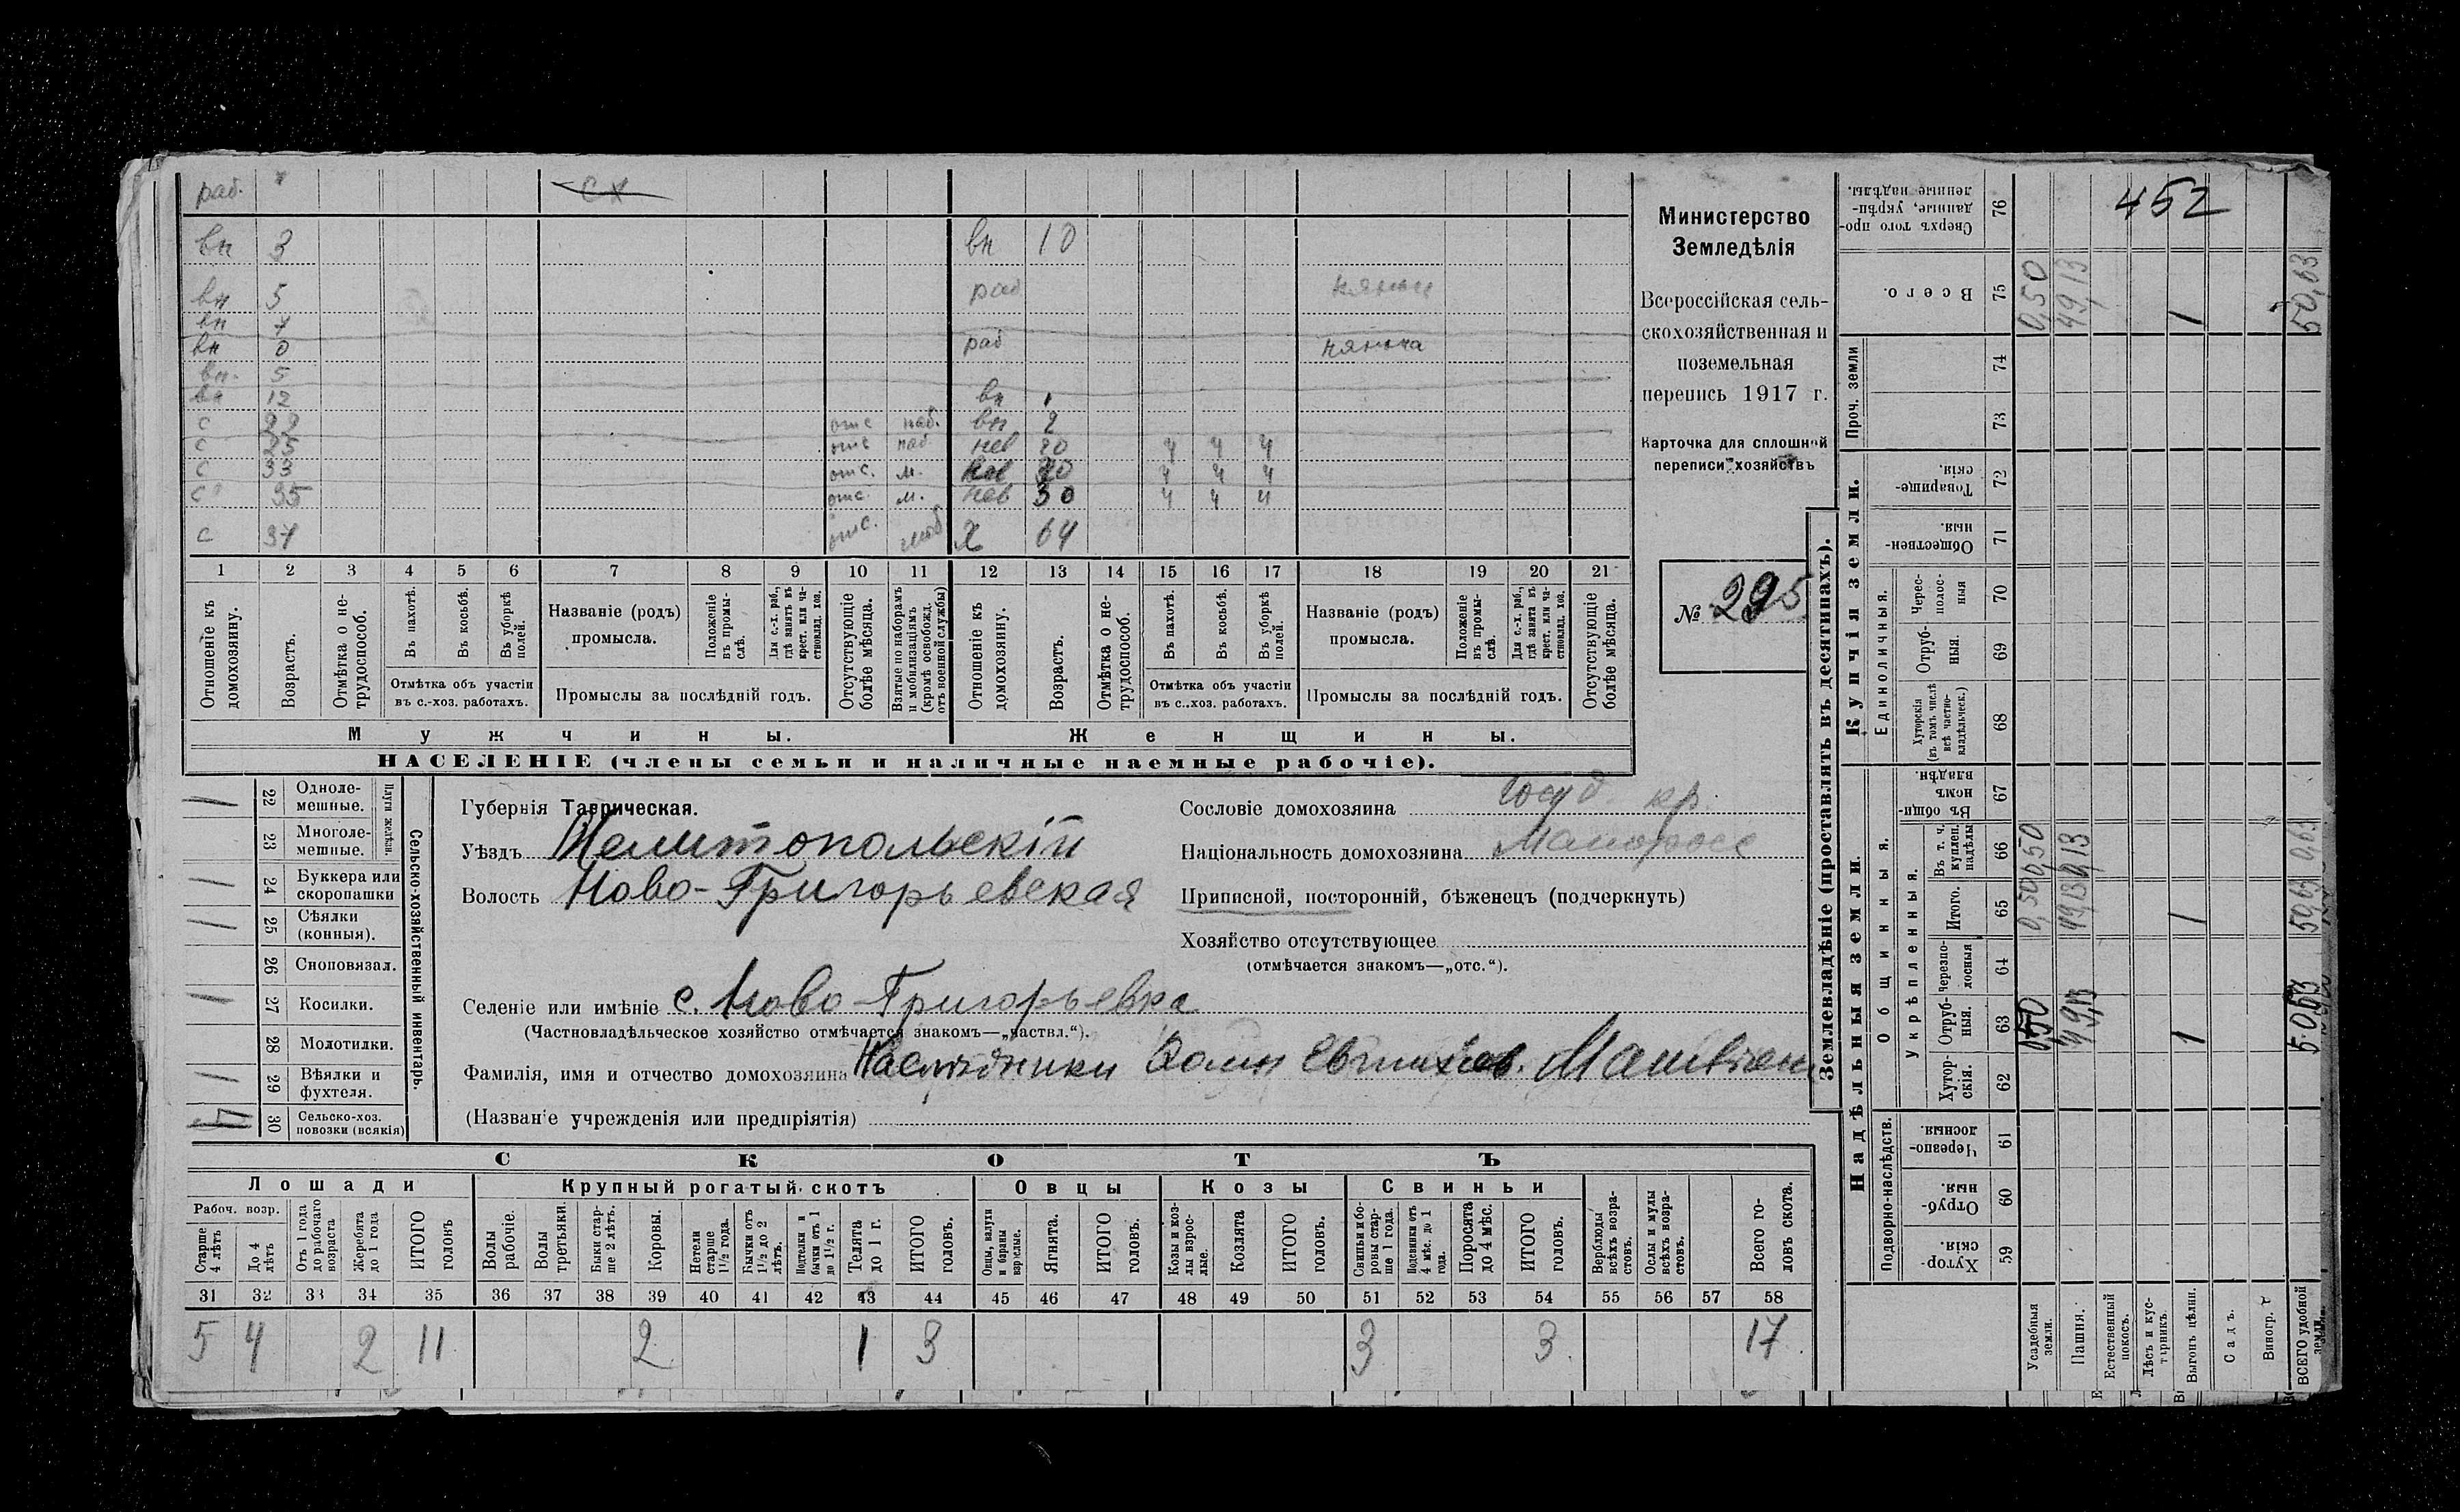 452
раб. сх
вн 3 вн 10
вн 5 раб няньк
вн 7
вн 0 раб нянька
вн. 5
вн 12 вн 1
с 22 отс наб. вн 2
с 25 отс наб нев 20 ч ч ч
с 33 отс. м. нев 20 ч ч ч
с 35 отс. м. нев 30 ч ч ч
с 37 отс. моб Х 64
1 2 3 4 5 6 7 8 9 10 11 12 13 14 15 16 17 18 19 20 21
Отношеніе къ домохозяину.
Возрастъ.
Отмѣтка о нетрудоспособ.
Въ пахотѣ.
Въ косьбѣ.
Въ уборкѣ полей.
Отмѣтка объ участіи
въ с.-хоз. работахъ.
Названіе (родъ)
промысла.
Положеніе въ промыслѣ.
Для с.-х. раб., гдѣ занятъ въ крест. или частновлад. хоз.
Промыслы за послѣдній годъ.
Отсутствующіе болѣе мѣсяца.
Взятые по наборамъ и мобилизаціямъ (кромѣ освобожд. отъ военной службы)
Отношеніе къ домохозяину.
Возрастъ.
Отмѣтка о нетрудоспособ.
Въ пахотѣ.
Въ косьбѣ.
Въ уборкѣ полей.
Отмѣтка объ участіи
въ с..хоз. работахъ.
Названіе (родъ)
промысла.
Положеніе въ промыслѣ.
Для с.-х. раб., гдѣ занята въ крест. или частновлад. хоз.
Промыслы за послѣдній годъ.
Отсутствующіе болѣе мѣсяца.
Мужчины. Женщины.
НАСЕЛЕНІЕ (члены семьи и наличные наемные рабочіе).
Министерство
Земледѣлія
Всероссійская сель-
скохозяйственная и
поземельная
перепись 1917 г.
Карточка для сплошной
переписи хозяйствъ
№ 295
Сельско-хозяйственный инвентарь.
Плуги желѣзн.
1 22 Однолемешные.
23 Многолемешные.
1 24 Буккера или скоропашки
1 25 Сѣялки (конныя).
26 Сноповязал.
1 27 Косилки.
28 Молотилки.
1 29 Вѣялки и фухтеля.
30 Сельско-хоз. повозки (всякія)
Губернія Таврическая.
Уѣздъ Мелитопольскій
Волость Ново-Григорьевская
Селеніе или имѣніе с. Ново-Григорьевка
(Частновладѣльческое хозяйство отмѣчается знакомъ—„частвл.“).
Фамилія, имя и отчество домохозяина Наслѣдники
(Названіе учрежденія или предпріятія)
Сословіе домохозяина Госуд. кр.
Національность домохозяина Малоросс
Приписной, посторонній, бѣженецъ (подчеркнуть)
Хозяйство отсутствующее
(отмѣчается знакомъ—„отс.“).
СКОТЪ
Лошади Крупный рогатый скотъ Овцы Козы Свиньи
Рабоч. возр.
Старше 4 лѣтъ
До 4 лѣтъ
Отъ 1 года до рабочаго возраста
Жеребята до 1 года
ИТОГО головъ
Волы рабочіе.
Волы третьяки.
Быки старше 2 лѣтъ.
Коровы.
Нетели старше 1½ года.
Бычки отъ 1½ до 2 лѣтъ.
Подтелки и бычки отъ 1 до 1½ г.
Телята до 1 г.
ИТОГО головъ.
Овцы, валухи и бараны взрослые.
Ягнята.
ИТОГО головъ.
Козы и козлы взрослые.
Козлята
ИТОГО головъ.
Свиньи и боровы старше 1 года.
Подсвинки отъ 4 мѣс. до 1 года.
Поросята до 4 мѣс.
ИТОГО головъ.
Верблюды всѣхъ возрастовъ.
Ослы и мулы всѣхъ возрастовъ.
Всего головъ скота.
31 32 33 34 35 36 37 38 39 40 41 42 43 44 45 46 47 48 49 50 51 52 53 54 55 56 57 58
5 4 2 11 2 1 3 3 3 17
Землевладѣніе (проставлять въ десятинахъ).
Купчія земли.
Надѣльныя земли.
Проч. земли
Единоличныя.
Общинныя.
Укрѣпленныя.
Подворно-наслѣдств.
Сверхъ того проданные, укрѣпленные надѣлы. 76
Всего. 75
74
73
Товарищескія. 72
Общественныя. 71
Чересполосныя 70
Отрубныя. 69
Хуторскія (въ томъ числѣ всѣ частновладѣльческ.) 68
Въ общинномъ владѣн. 67
Въ т. ч. куплен. надѣлы 66
Итого. 65
Черезполосныя 64
Отрубныя. 63
Хуторскія. 62
Черезполосныя. 61
Отрубныя. 60
Хуторскія. 59
Усадебныя земли. 0,50 0,50 0,50 0,50
Пашня. 49,13 49,13 49,13
Естественный покосъ.
Лѣсъ и кустарникъ.
Выгонъ цѣлин. 1 1 1
Садъ.
Виногр.
ВСЕГО удобной земли. 50,63 50,63 0,63 50,63